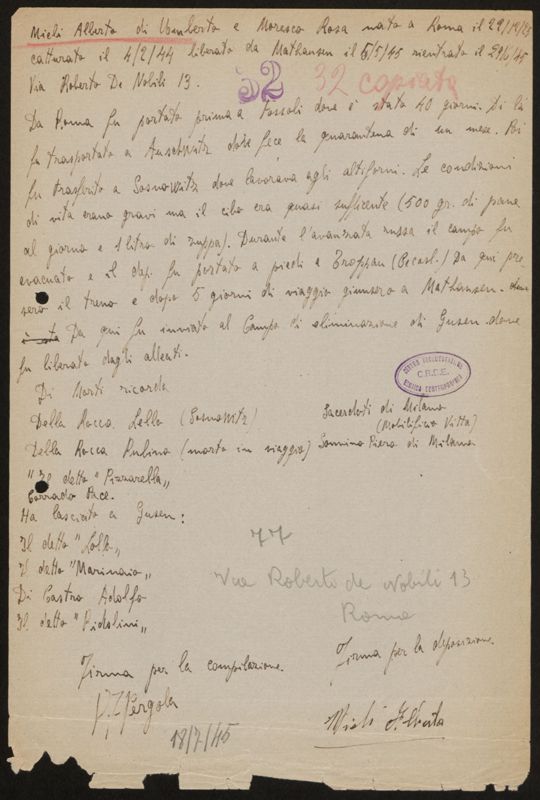 Mieli Alberto di Umberto e Moresco Rosa nato a Roma il 29/12/25
catturato il 4/2/44 liberato da Mathausen il 5/5/45 rientrato il 29/6/45
Via Roberto De Nobili 13.
32 32 copiata
Da Roma fu portato prima a Fossoli dove è stato 40 giorni. Di là
fu trasportato a Auschwitz dove fece la quarantena di un mese. Poi
fu trasferito a Sosnowitz dove lavorava agli altiforni. Le condizioni
di vita erano gravi ma il cibo era quasi sufficente (500 gr. di pane
al giorno e 1 litro di zuppa). Durante l'avanzata russa il campo fu
evacuato e il dep. fu portato a piedi a Troppau (Cecosl.) Da qui pre-
sero il treno e dopo 5 giorni di viaggio giunsero a Mathausen.
Da qui fu inviato al Campo di eliminazione di Gusen dove
fu liberato dagli alleati.
Di Morti ricorda
Della Rocca Lello (Sosnowitz)
Sacerdoti di Milano
(Mobilificio Vitta)
Della Rocca Rubino (morto in viaggio) Sonnino Piero di Milano
"Il detto "Pizzarella„
Corrado Pace.
CENTRO DOCUMENTAZIONE
C.R.D.E.
EBRAICA CONTEMPORANEA
Ha lasciato a Gusen:
Il detto "Lolle„
Il detto "Marinaio„
Di Castro Adolfo
Il detto "Ridolini„
77
Via Roberto de Nobili 13
Roma
Firma per la compilazione.
Firma per la deposizione.
Pergola
Mieli Alberto
18/7/45